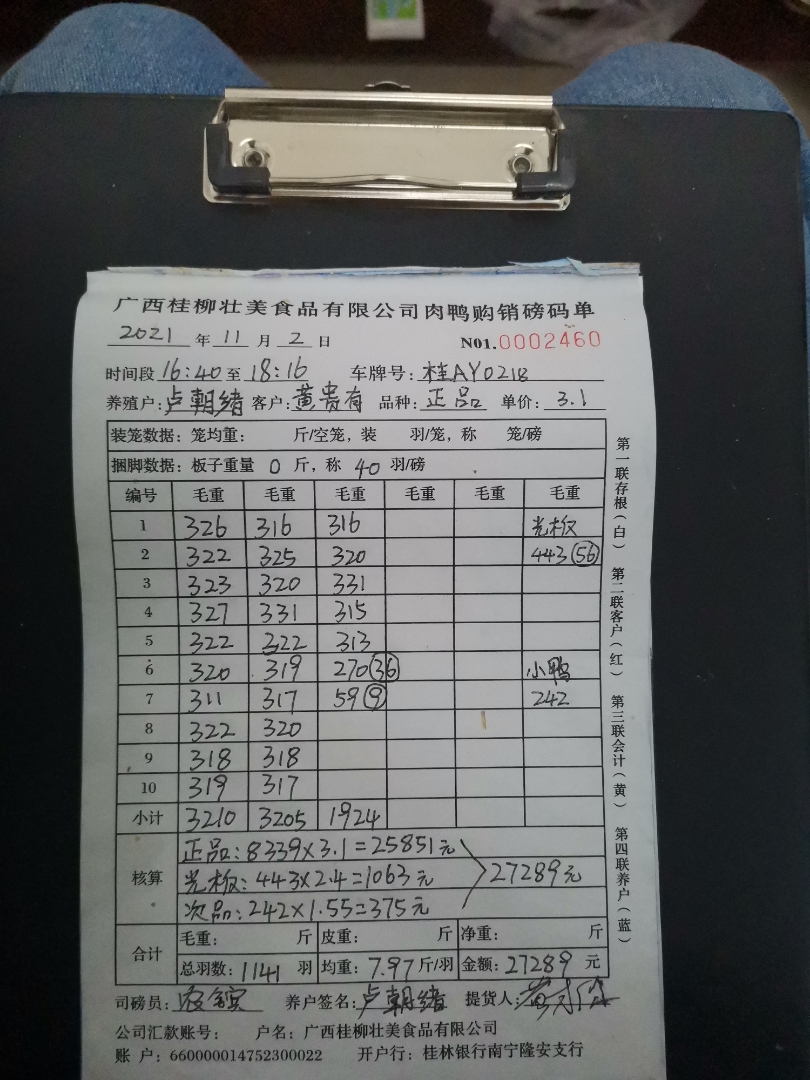 广西桂柳壮美食品有限公司肉鸭购销磅码单
2021 年 11 月 2 日 N01.0002460
时间段 16:40 至 18:16 车牌号: 桂AY0218
养殖户: 卢朝绪 客户: 黄贵有 品种: 正品 单价: 3.1
装笼数据: 笼均重: 斤/空笼, 装 羽/笼, 称 笼/磅
捆脚数据: 板子重量 0 斤, 称 40 羽/磅
编号 毛重 毛重 毛重 毛重 毛重 毛重
1 326 316 316 光板
2 322 325 320 443 56
3 323 320 331
4 327 331 315
5 322 322 313
6 320 319 270 36 小鸭
7 311 317 59 9 242
8 322 320
9 318 318
10 319 317
小计 3210 3205 1924
核算
正品: 8339×3.1=25851元
光板: 443×2.4=1063元
次品: 242×1.55=375元
27289元
合计
毛重: 斤 皮重: 斤 净重: 斤
总羽数: 1141 羽 均重: 7.97 斤/羽 金额: 27289 元
司磅员: 养户签名: 卢朝绪 提货人:
公司汇款账号: 户名: 广西桂柳壮美食品有限公司
账 户: 660000014752300022 开户行: 桂林银行南宁隆安支行
第一联存根(白) 第二联客户(红) 第三联会计(黄) 第四联养户(蓝)